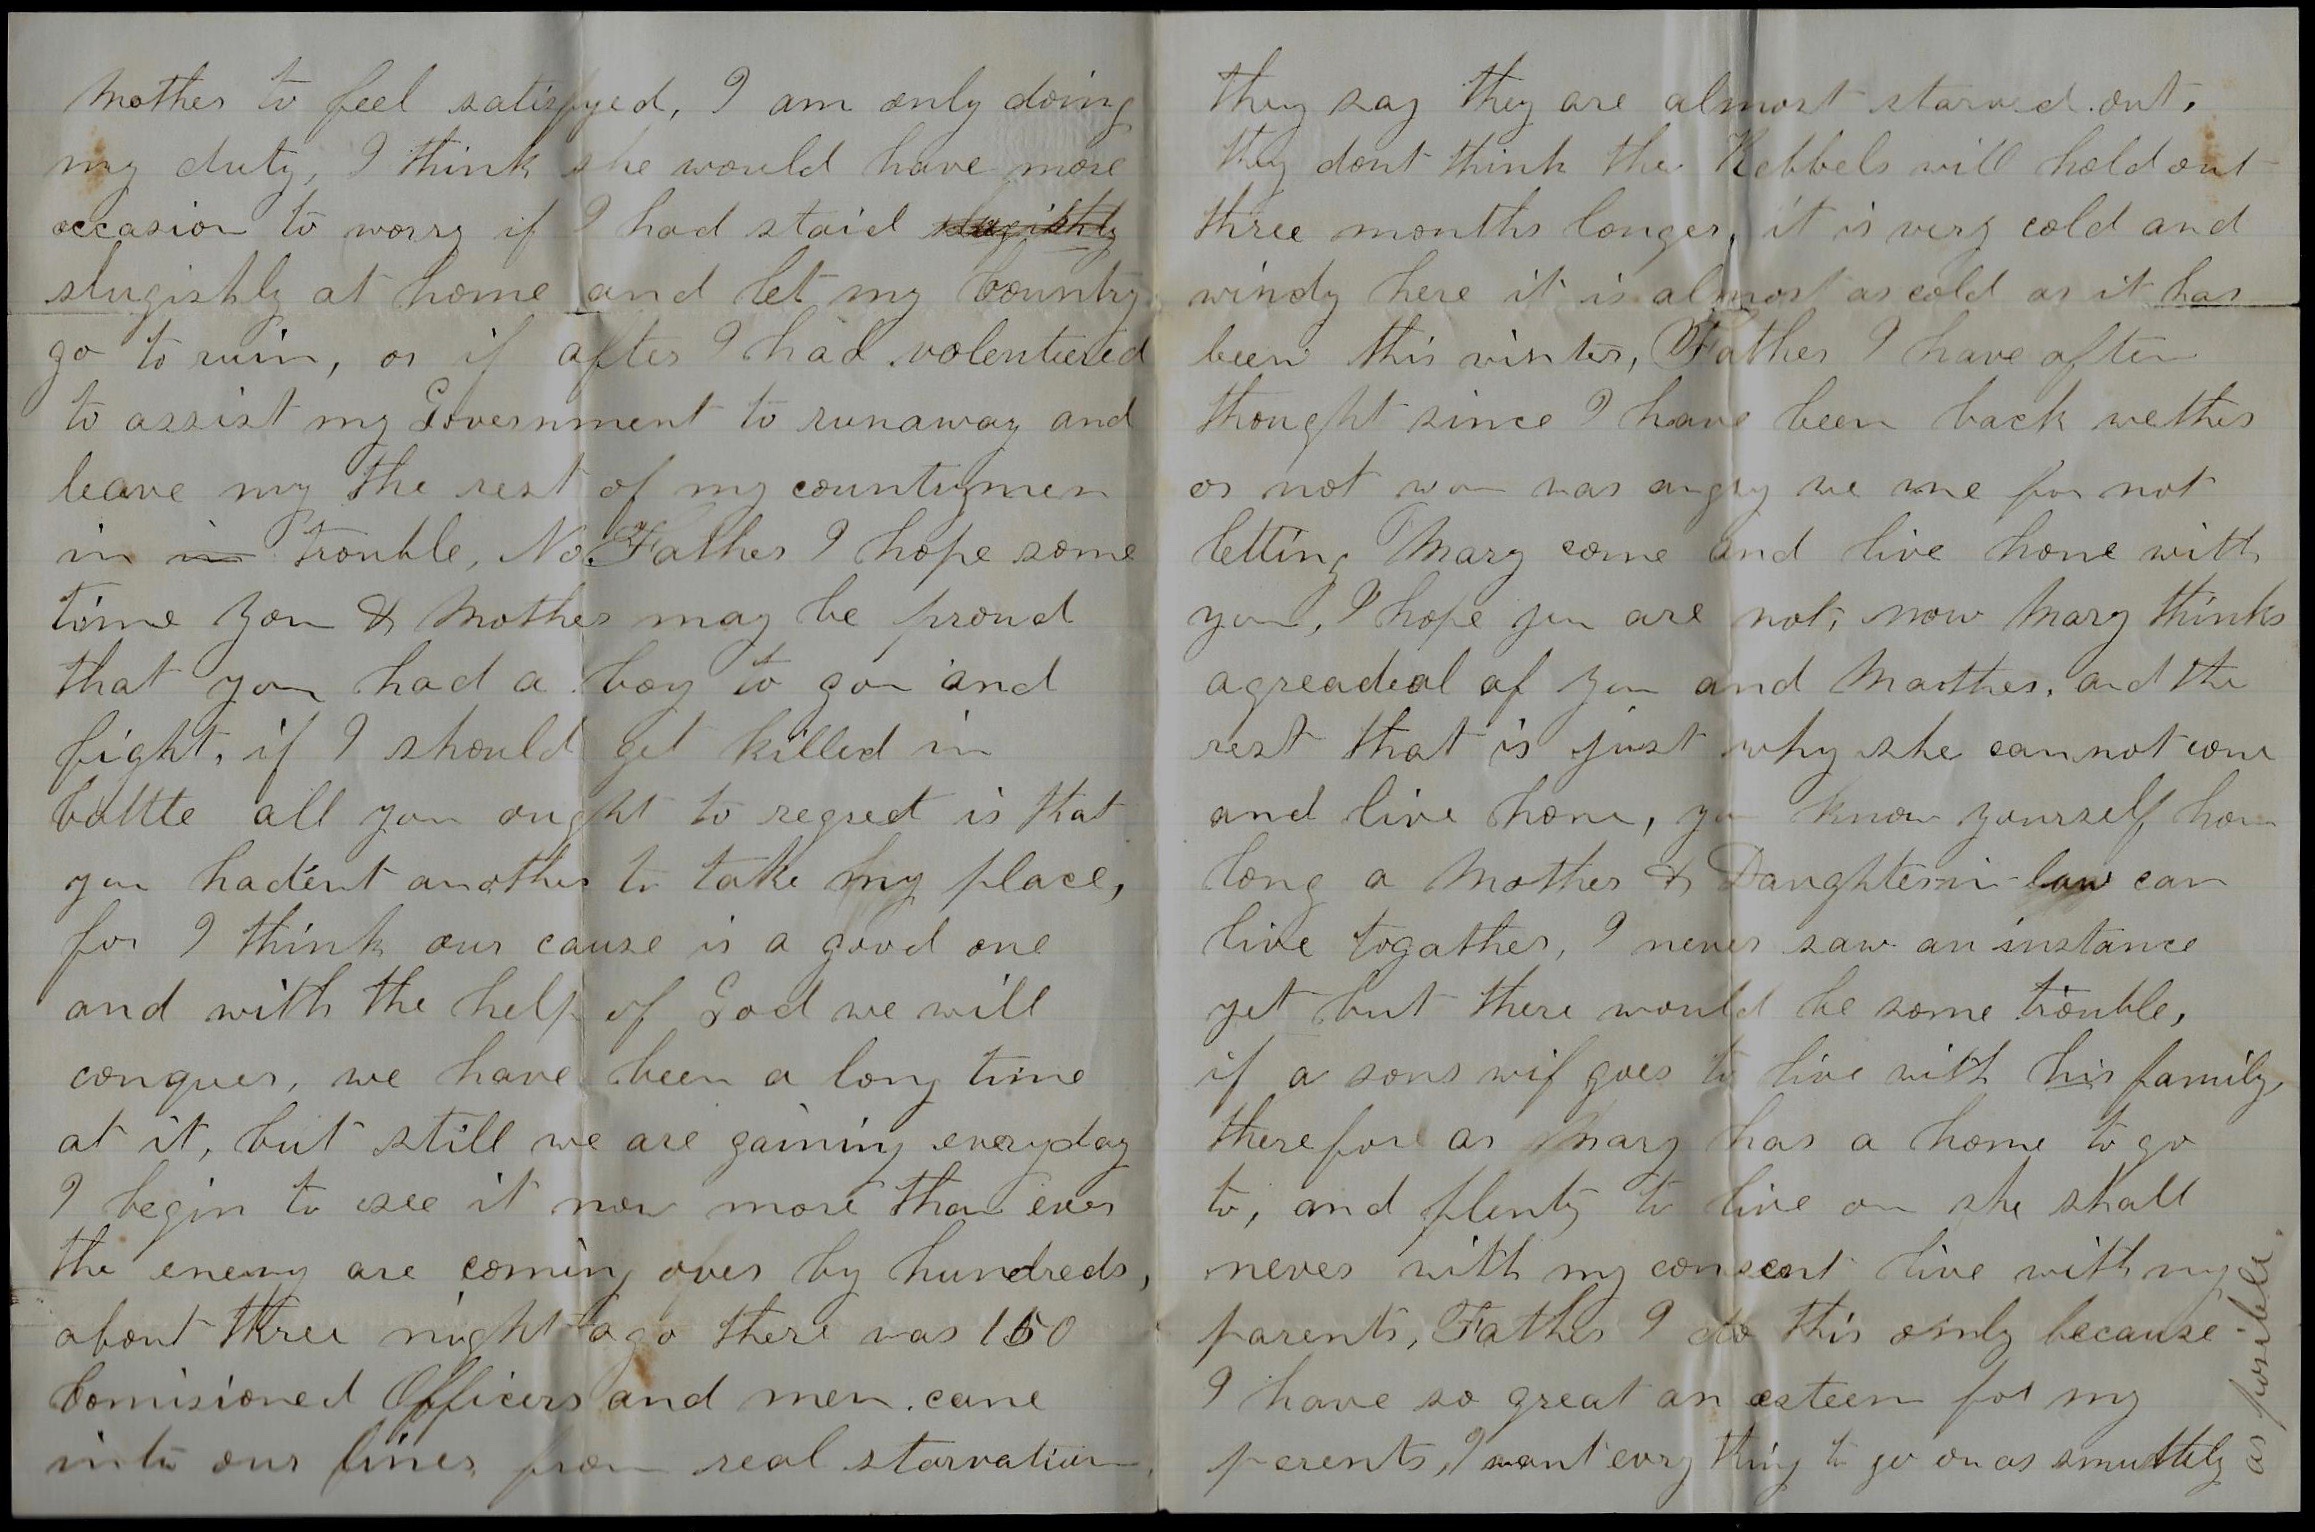 Mother to feel satisfyed, I am only doing
my duty, I think she would have more
occasion to worry if I had staid slugishly
slugishly at home and let my Country
go to ruin, or if after I had volentiered
to assist my Government to runaway and
leave my the rest of my countrymen
in in trouble, No. Father I hope some
time you & Mother may be proud
that you had a boy to gou and
fight, if I should get killed in
battle all you ought to regret is that
you hadent another to take my place,
for I think our cause is a good one
and with the help of God we will
conquer, we have been a long time
at it, but still we are gaining everyday
I begin to see it now more than ever
the enemy are coming over by hundreds,
about three night ago there was 150
Comisioned Officers and men came
into our lines from real starvation,
they say they are almost starved out,
they dont think the Rebbels will hold out
three months longer, it is very cold and
windy here it is almost as cold as it has
been this winter, Father I have often
thought since I have been back wether
or not you was angry we me for not
letting Mary come and live home with
you, I hope you are not, now Mary thinks
agreadeal of you and Marther, and the
rest that is just why she cannot come
and live home, you know yourself how
long a Mother & Daughterin-law can
live togather, I never saw an instance
yet but there would be some trouble,
if a sons wif goes to live with his family,
therefore as Mary has a home to go
to, and plenty to live on she shall
never with my consent live with my
parents, Father I do this only because
I have so great an esteem for my
perents, I want evry thing to go on as smuthly
as posible.